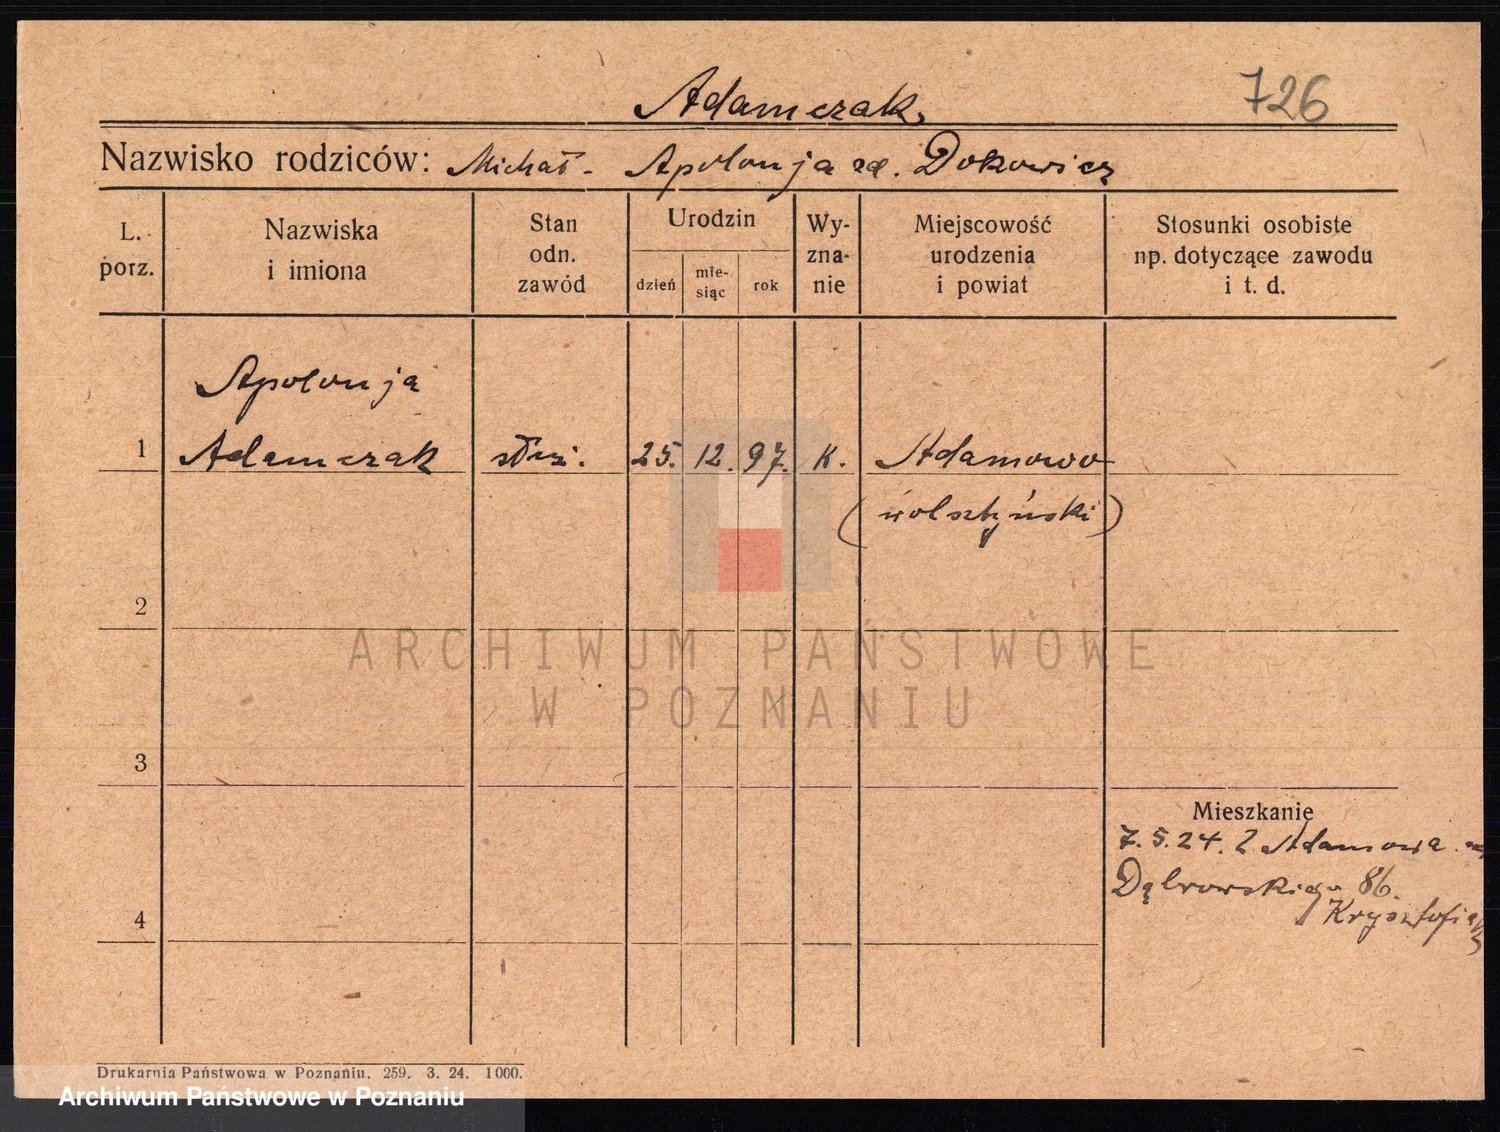 Adamczak
726
Nazwisko rodziców: Michał - Apolonja zd. Dokowicz
L. porz.
Nazwiska i imiona
Stan odn. zawód
Urodzin
dzień
mie-siąc
rok
Wy-zna-nie
Miejscowość urodzenia i powiat
Stosunki osobiste np. dotyczące zawodu i t. d.
Apolonja
1 Adamczak służ. 25. 12. 97. k. Adamowo
(wolsztyński)
2
ARCHIWUM PAŃSTWOWE
W POZNANIU
3
Mieszkanie
7.5.24. z Adamowa
Dąbrowskiego 86.
4
Drukarnia Państwowa w Poznaniu. 259. 3. 24. 1000.
Archiwum Państwowe w Poznaniu